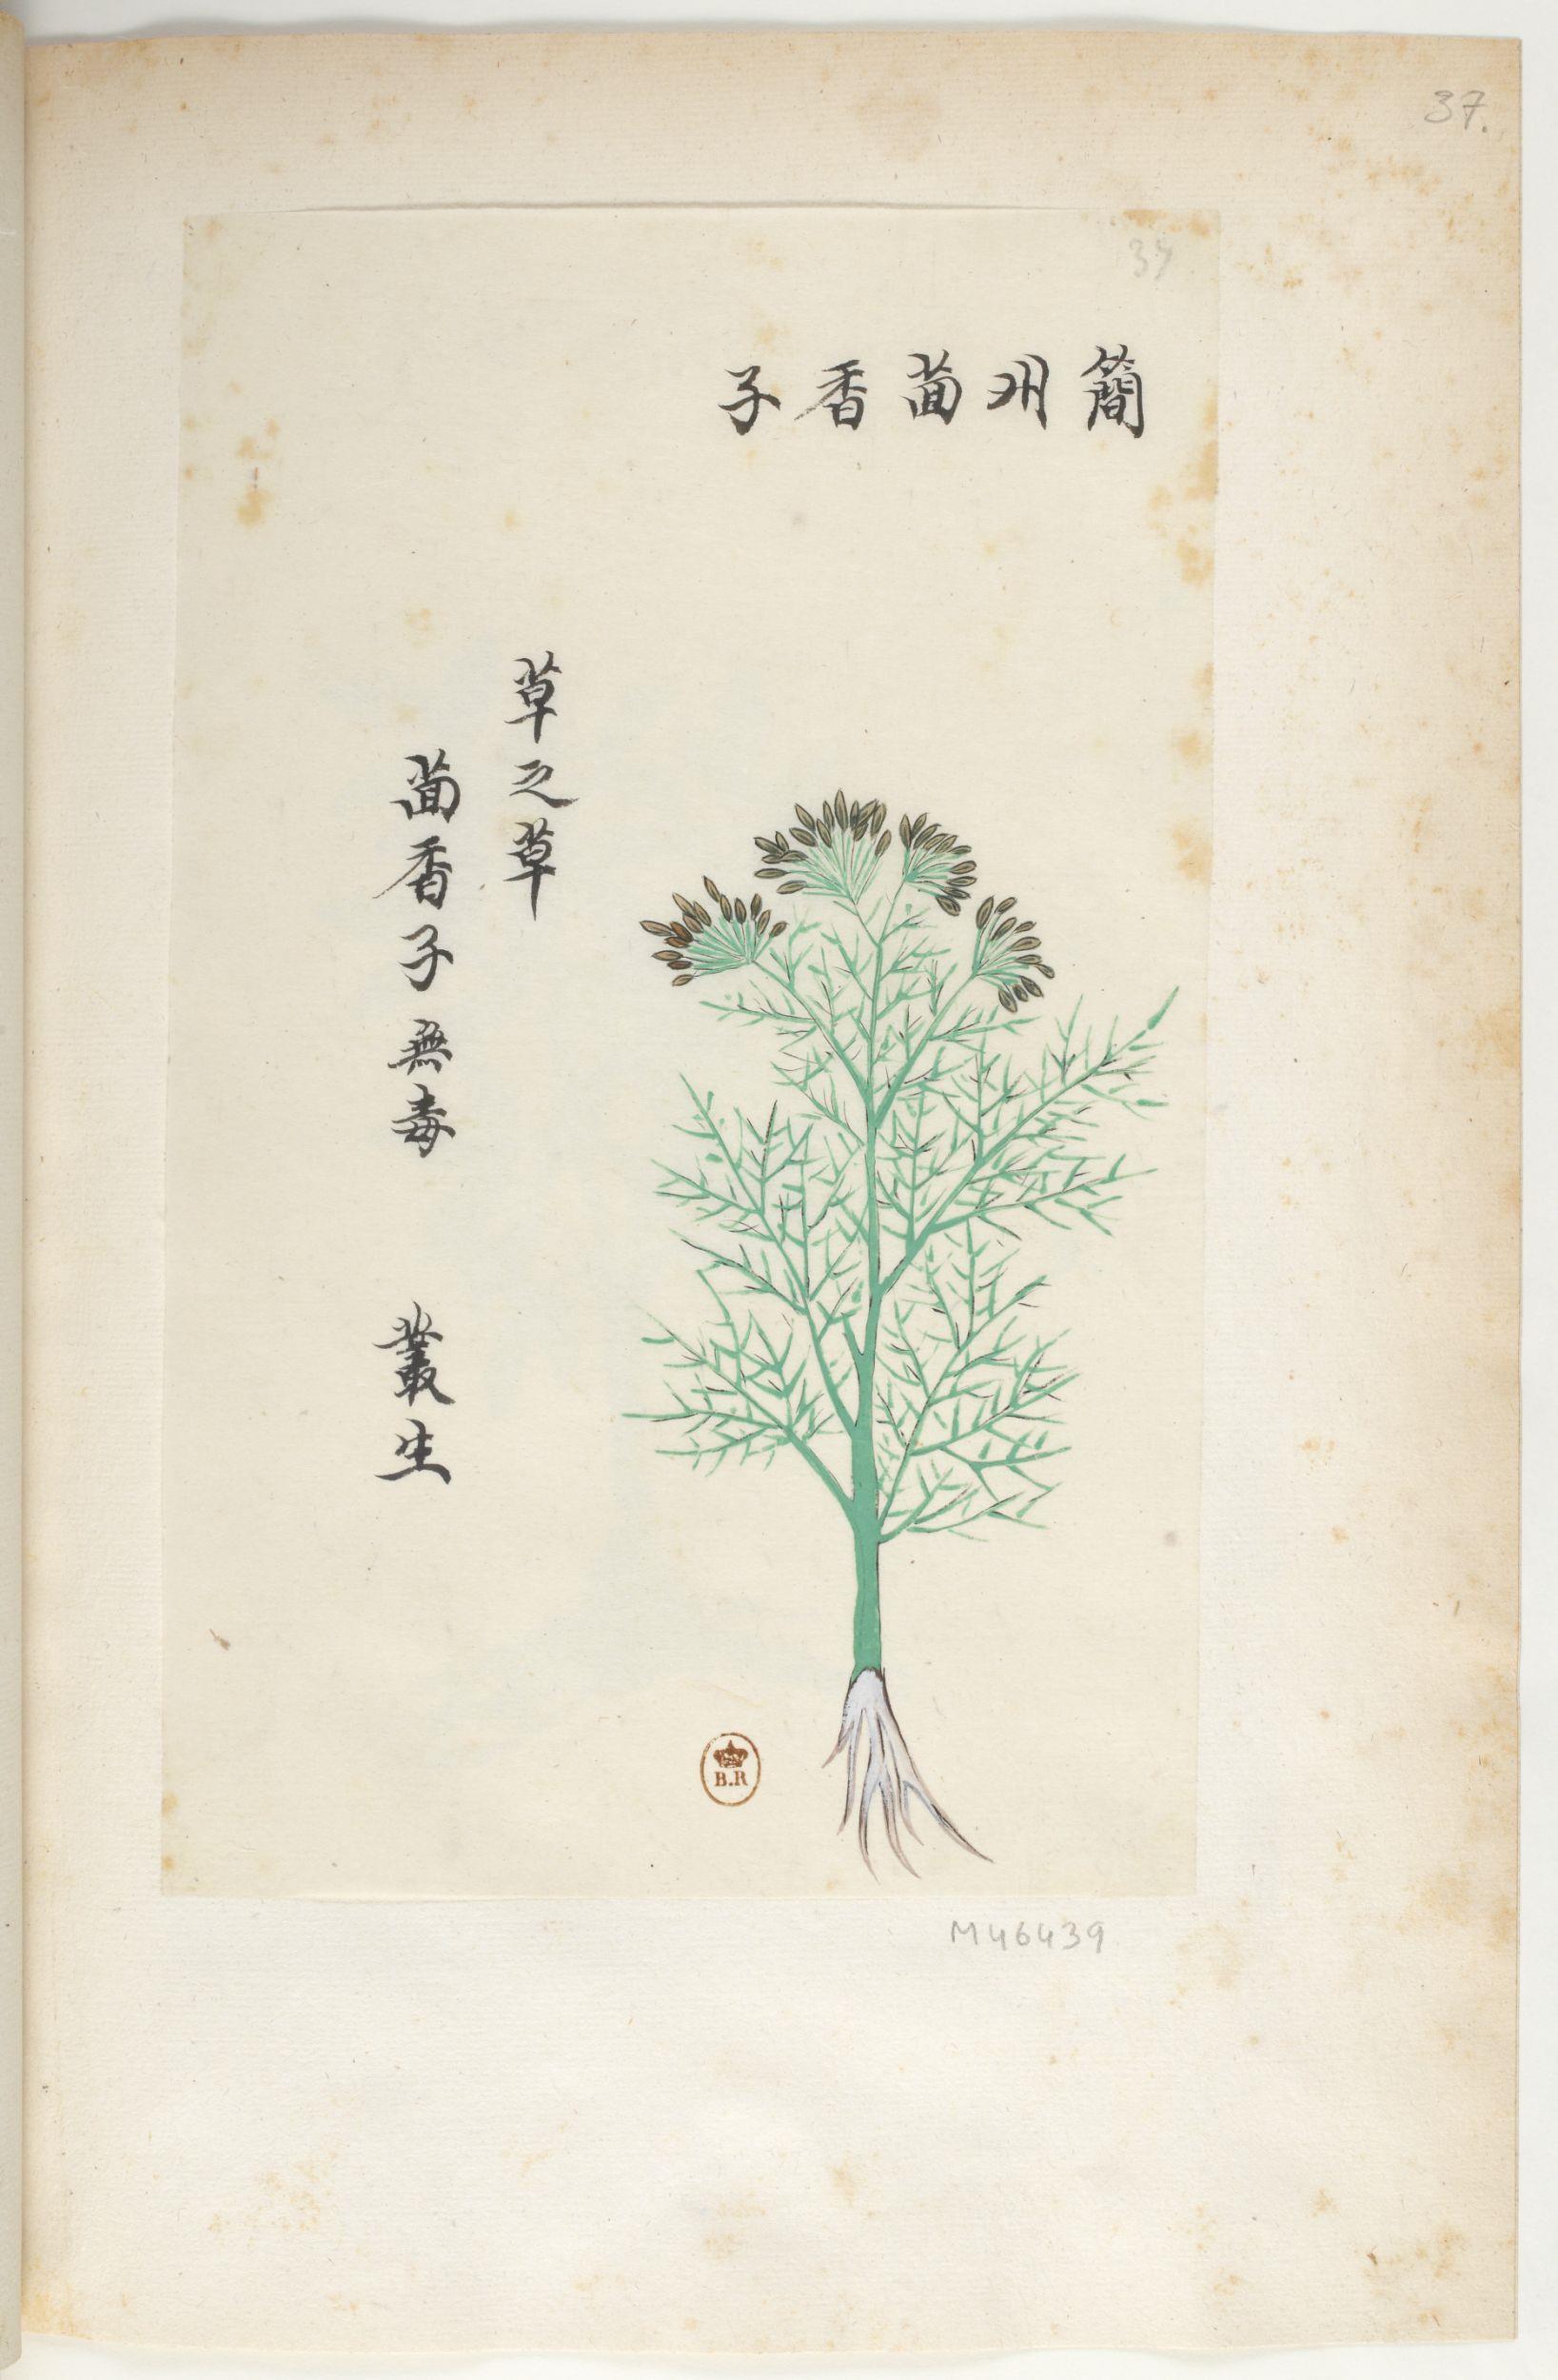 37.
簡州茴香子
草之草
茴香子 無毒 叢生
B.R
M46439